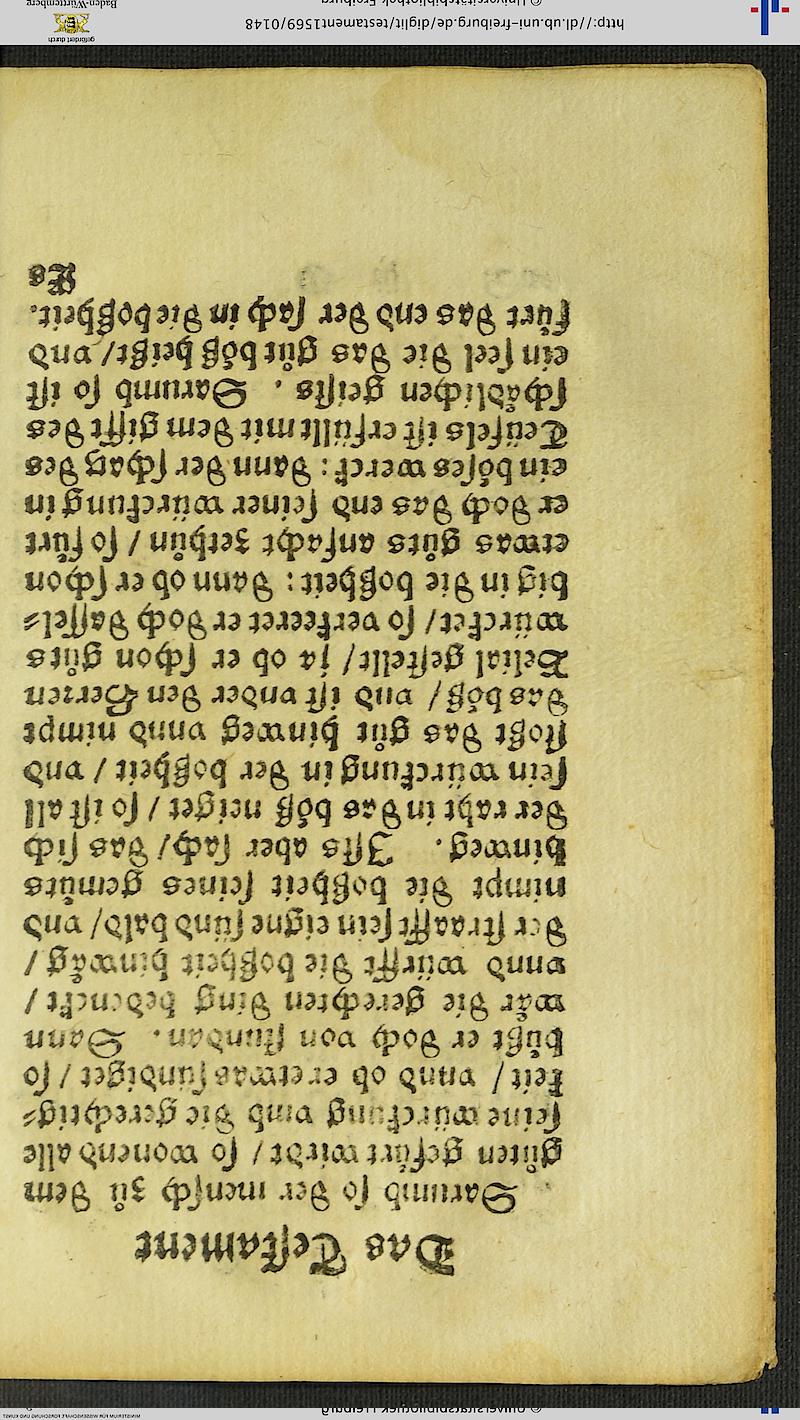 Das Testament
Darumb so der mensch zů dem
gůten gefürt wirdt / so wonend alle
seine würckung vnd die gerechtig⸗
keit / vnnd ob er etwas sündiget / so
bůßt er doch von stundan. Dann
wår die gerechten ding bedenckt /
vnnd würfft die boßheit hinwåg /
der straafft sein eigne sünd bald / vnd
nimpt die boßheit seines gemůtes
hinweg. Ists aber sach / das sich
der raht in das böß neiget / so ist all
sein würckung in der boßheit / vnd
stoßt das gůt hinweg vnnd nimpt
das böß / vnd ist vnder den Herren
Belial gestellt / ja ob er schon gůts
würcket / so verkeeret er doch dassel⸗
big in die boßheit: dann ob er schon
etwas gůts anfacht zethůn / so fürt
er doch das end seiner würckung in
ein böses werck: dann der schatz des
Teufels ist erfüllt mit dem gifft des
schådlichen geists. Darumb so ist
ein seel die das gůt böß heißt / vnd
fürt das end der sach in die boßheit.
Es
http://dl.ub.uni-freiburg.de/diglit/testament1569/0148
© Universitätsbibliothek Freiburg
gefördert durch
Baden-Württemberg